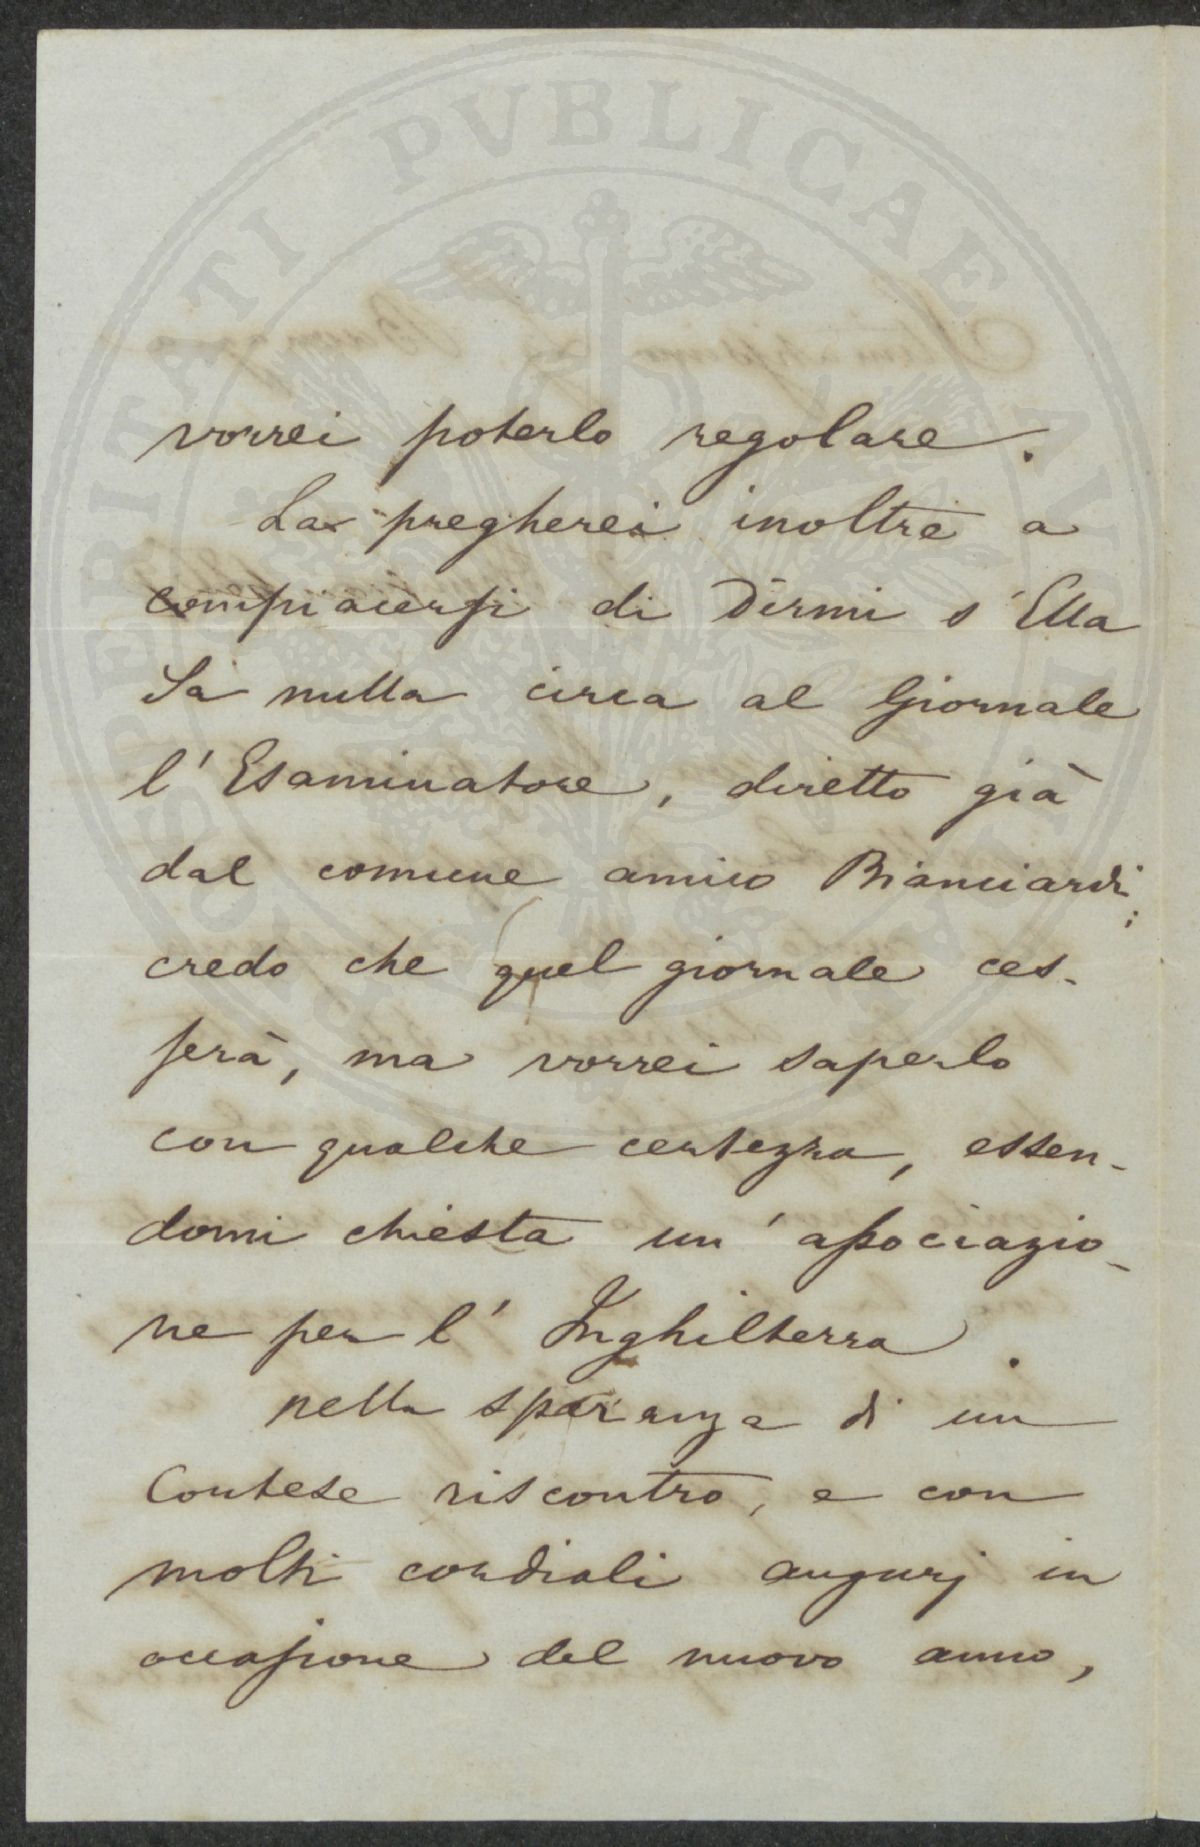 vorrei poterlo regolare.
La pregherei inoltre a
compiacersi di dirmi s'Ella
sa nulla circa al Giornale
l'Esaminatore, diretto già
dal comune amico Bianciardi;
credo che quel giornale ces-
serà, ma vorrei saperlo
con qualche certezza, essen-
domi chiesta un'associazio-
ne per l'Inghilterra.
nella speranza di un
Cortese riscontro, e con
molti cordiali augurj in
occasione del nuovo anno,
PROSPERITATI PUBLICAE AUGENDAE